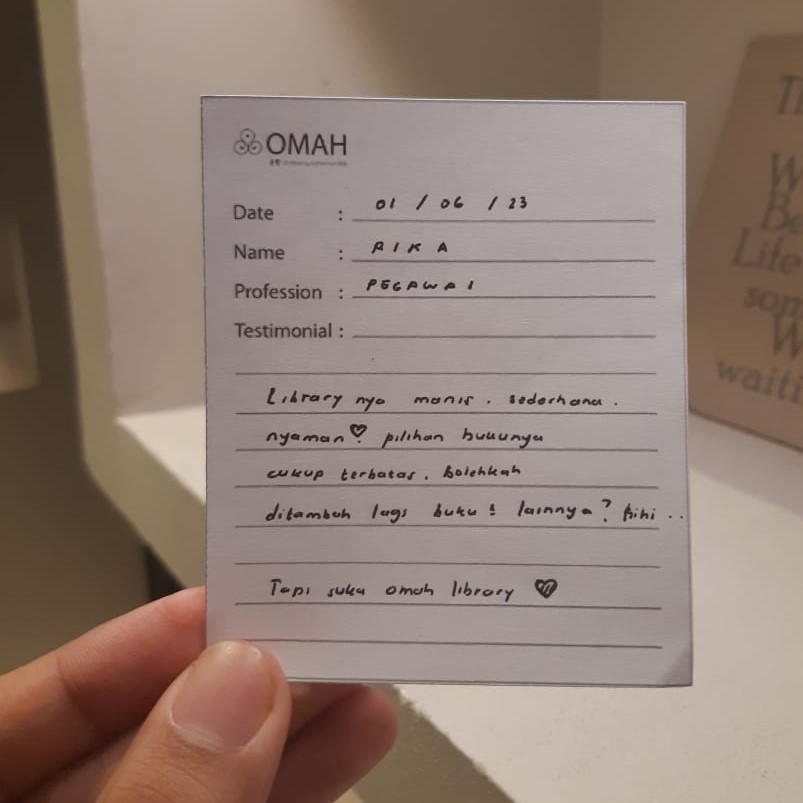 OMAH
Date : 01 / 06 / 23
Name : RIKA
Profession : PEGAWAI
Testimonial :
Library nya manis. sederhana.
nyaman♡. pilihan bukunya
cukup terbatas. bolehkah
ditambah lagi buku2 lainnya? hihi ..
Tapi suka omah library ♡
Th
W
Be
Life
som
W
waiti